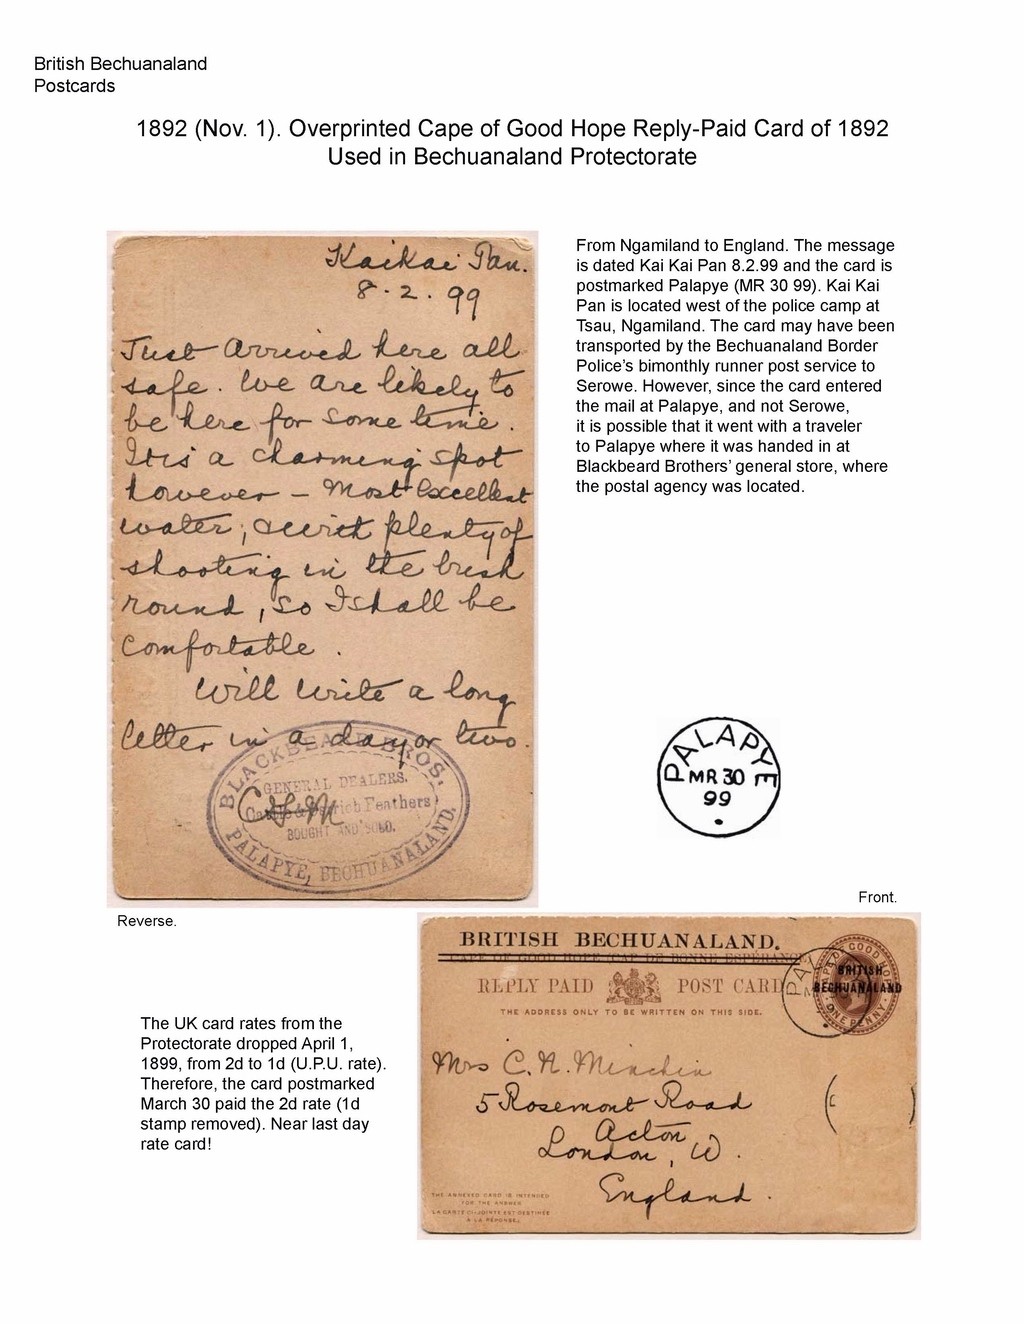 British Bechuanaland
Postcards
1892 (Nov. 1). Overprinted Cape of Good Hope Reply-Paid Card of 1892
Used in Bechuanaland Protectorate
Kaikai Pan.
8.2.99
Just arrived here all
safe. We are likely to
be here for some time.
It is a charming spot
however - Most Excellent
water, & with plenty of
shooting in the bush
round, so I shall be
comfortable.
Will write a long
letter in a day or two.
C H M
BLACKBEARD BROS.
GENERAL DEALERS.
Cattle & Ostrich Feathers
BOUGHT AND SOLD.
PALAPYE, BECHUANALAND.
Reverse.
From Ngamiland to England. The message
is dated Kai Kai Pan 8.2.99 and the card is
postmarked Palapye (MR 30 99). Kai Kai
Pan is located west of the police camp at
Tsau, Ngamiland. The card may have been
transported by the Bechuanaland Border
Police's bimonthly runner post service to
Serowe. However, since the card entered
the mail at Palapye, and not Serowe,
it is possible that it went with a traveler
to Palapye where it was handed in at
Blackbeard Brothers' general store, where
the postal agency was located.
PALAPYE
MR 30
99
Front.
The UK card rates from the
Protectorate dropped April 1,
1899, from 2d to 1d (U.P.U. rate).
Therefore, the card postmarked
March 30 paid the 2d rate (1d
stamp removed). Near last day
rate card!
BRITISH BECHUANALAND.
CAPE OF GOOD HOPE (CAP DE BONNE ESPERANCE)
REPLY PAID POST CARD
THE ADDRESS ONLY TO BE WRITTEN ON THIS SIDE.
CAPE OF GOOD HOPE
BRITISH
BECHUANALAND
ONE PENNY
Mrs C. H. Minchin
5 Rosemont Road
Acton
London, W.
England.
THE ANNEXED CARD IS INTENDED
FOR THE ANSWER
LA CARTE CI-JOINTE EST DESTINÉE
A LA RÉPONSE.